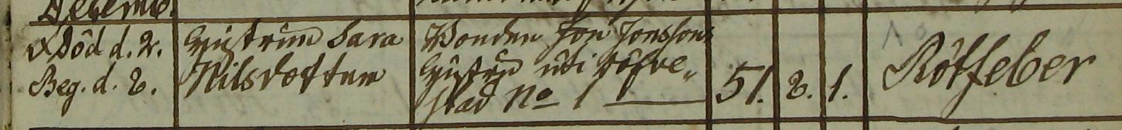 Decemb.
Död d. 2. Hustrun Sara Bonden Jon Jonssons
Beg. d. 8. Nilsdotter Hustru uti Töfve-
stad No 1 51. 8. 1. Rötfeber